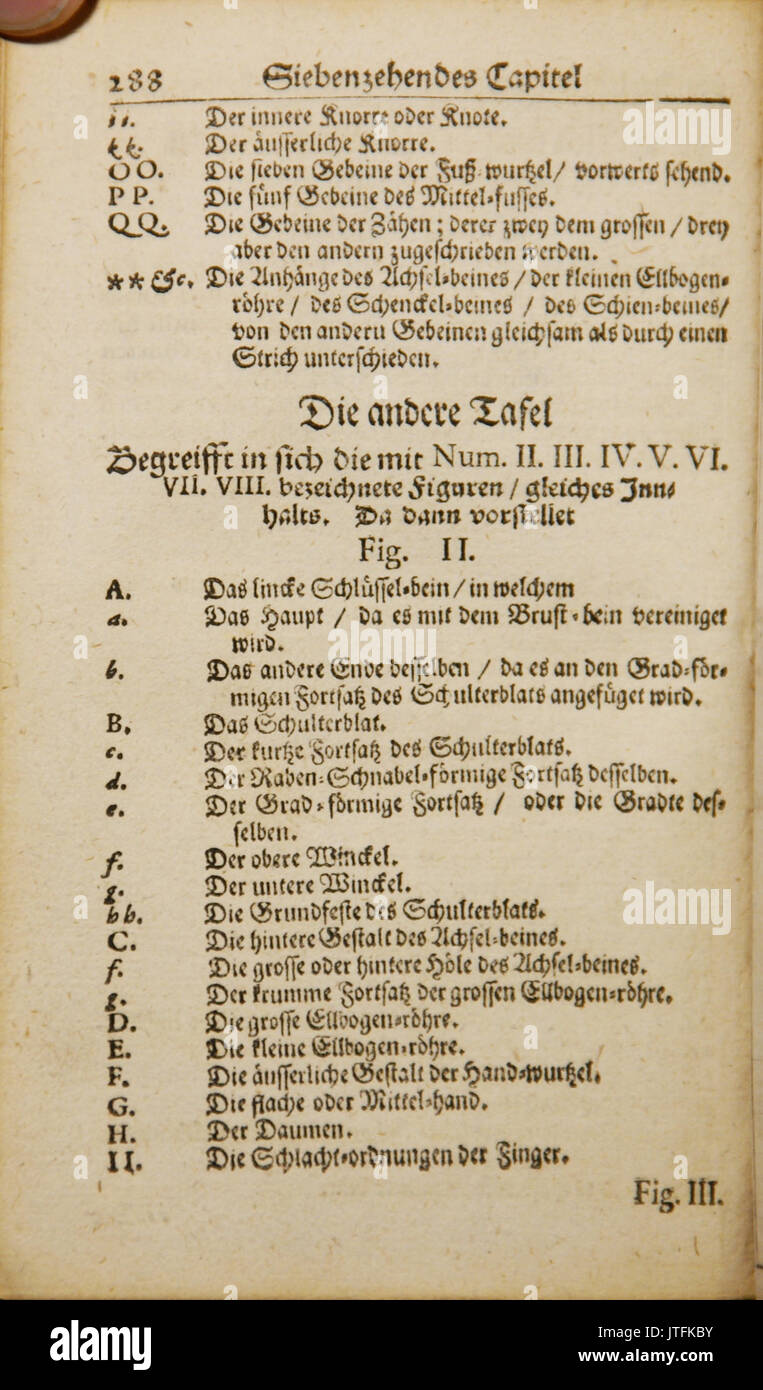 288 Siebenzehendes Capitel
ii. Der innere Knorre oder Knote.
kk. Der äusserliche Knorre.
OO. Die sieben Gebeine der Fuß-wurtzel/ vorwerts sehend.
PP. Die fünf Gebeine des Mittel-fusses.
QQ. Die Gebeine der Zähen; derer zwey dem grossen / drey
aber den andern zugeschrieben werden.
** &c. Die Anhänge des Achsel-beines / der kleinen Ellbogen-
röhre / des Schenckel-beines / des Schien-beines/
von den andern Gebeinen gleichsam als durch einen
Strich unterschieden.
Die andere Tafel
Begreifft in sich die mit Num. II. III. IV. V. VI.
VII. VIII. bezeichnete Figuren / gleiches Inn-
halts. Da dann vorstellet
Fig. II.
A. Das lincke Schlüssel-bein / in welchem
a. Das Haupt / da es mit dem Brust-bein vereiniget
wird.
b. Das andere Ende desselben / da es an den Grad-för-
migen Fortsatz des Schulterblats angefüget wird.
B. Das Schulterblat.
c. Der kurtze Fortsatz des Schulterblats.
d. Der Raben-Schnabel-förmige Fortsatz desselben.
e. Der Grad-förmige Fortsatz / oder die Gradte des-
selben.
f. Der obere Winckel.
g. Der untere Winckel.
bb. Die Grundfeste des Schulterblats.
C. Die hintere Gestalt des Achsel-beines.
f. Die grosse oder hintere Höle des Achsel-beines.
g. Der krumme Fortsatz der grossen Ellbogen-röhre.
D. Die grosse Ellbogen-röhre.
E. Die kleine Ellbogen-röhre.
F. Die äusserliche Gestalt der Hand-wurtzel.
G. Die flache oder Mittel-hand.
H. Der Daumen.
II. Die Schlacht-ordnungen der Finger.
Fig. III.
alamy
alamy
alamy
a
alamy
Image ID: JTFKBY
www.alamy.com